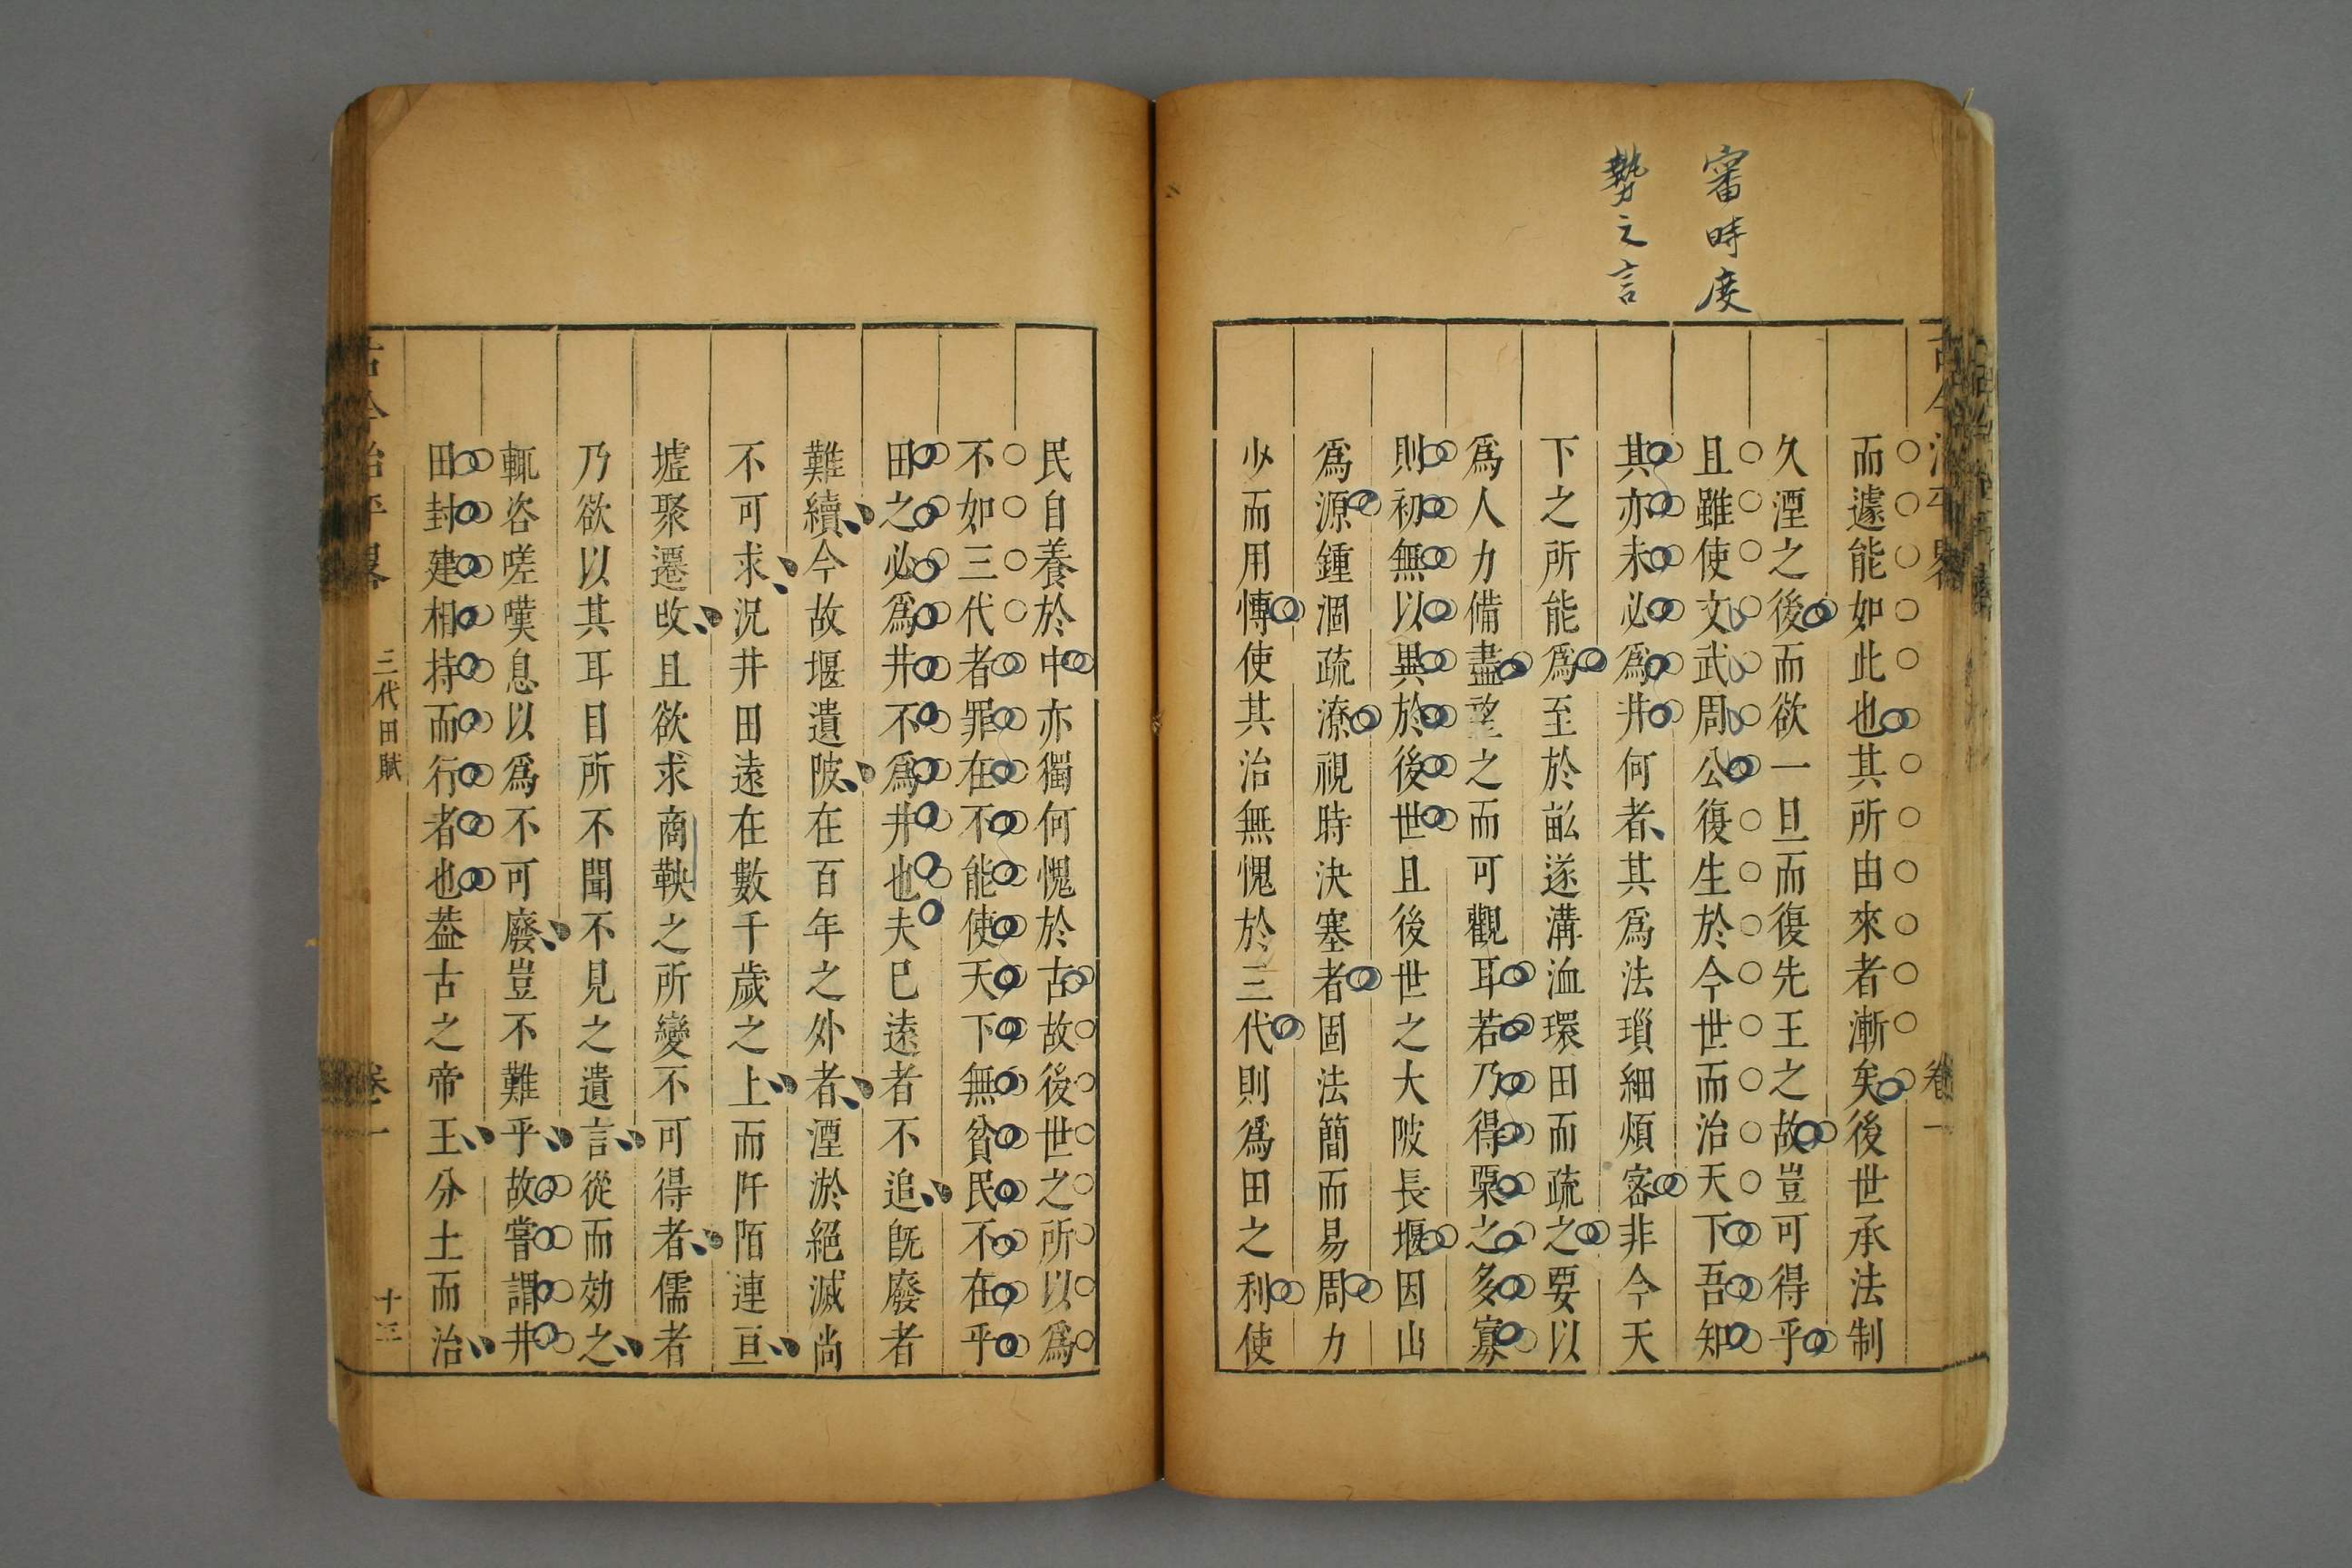 審時度
勢之言
而遽能如此也其所由來者漸矣後世承法制
久湮之後而欲一旦而復先王之故豈可得乎
且雖使文武周公復生於今世而治天下吾知
其亦未必爲井何者其爲法瑣細煩密非今天
下之所能爲至於畝遂溝洫環田而疏之要以
爲人力備盡望之而可觀耳若乃得粟之多寡
則初無以異於後世且後世之大陂長堰因山
爲源鍾涸疏潦視時決塞者固法簡而易周力
少而用慱使其治無愧於三代則爲田之利使
民自養於中亦獨何愧於古故後世之所以爲
不如三代者罪在不能使天下無貧民不在乎
田之必爲井不爲井也夫已遠者不追旣廢者
難續今故堰遺陂在百年之外者湮淤絕滅尚
不可求況井田遠在數千歲之上而阡陌連亘
墟聚遷改且欲求商鞅之所變不可得者儒者
乃欲以其耳目所不聞不見之遺言從而効之
輒咨嗟嘆息以爲不可廢豈不難乎故嘗謂井
田封建相持而行者也葢古之帝王分土而治
古今治平畧 三代田賦 卷一 十三